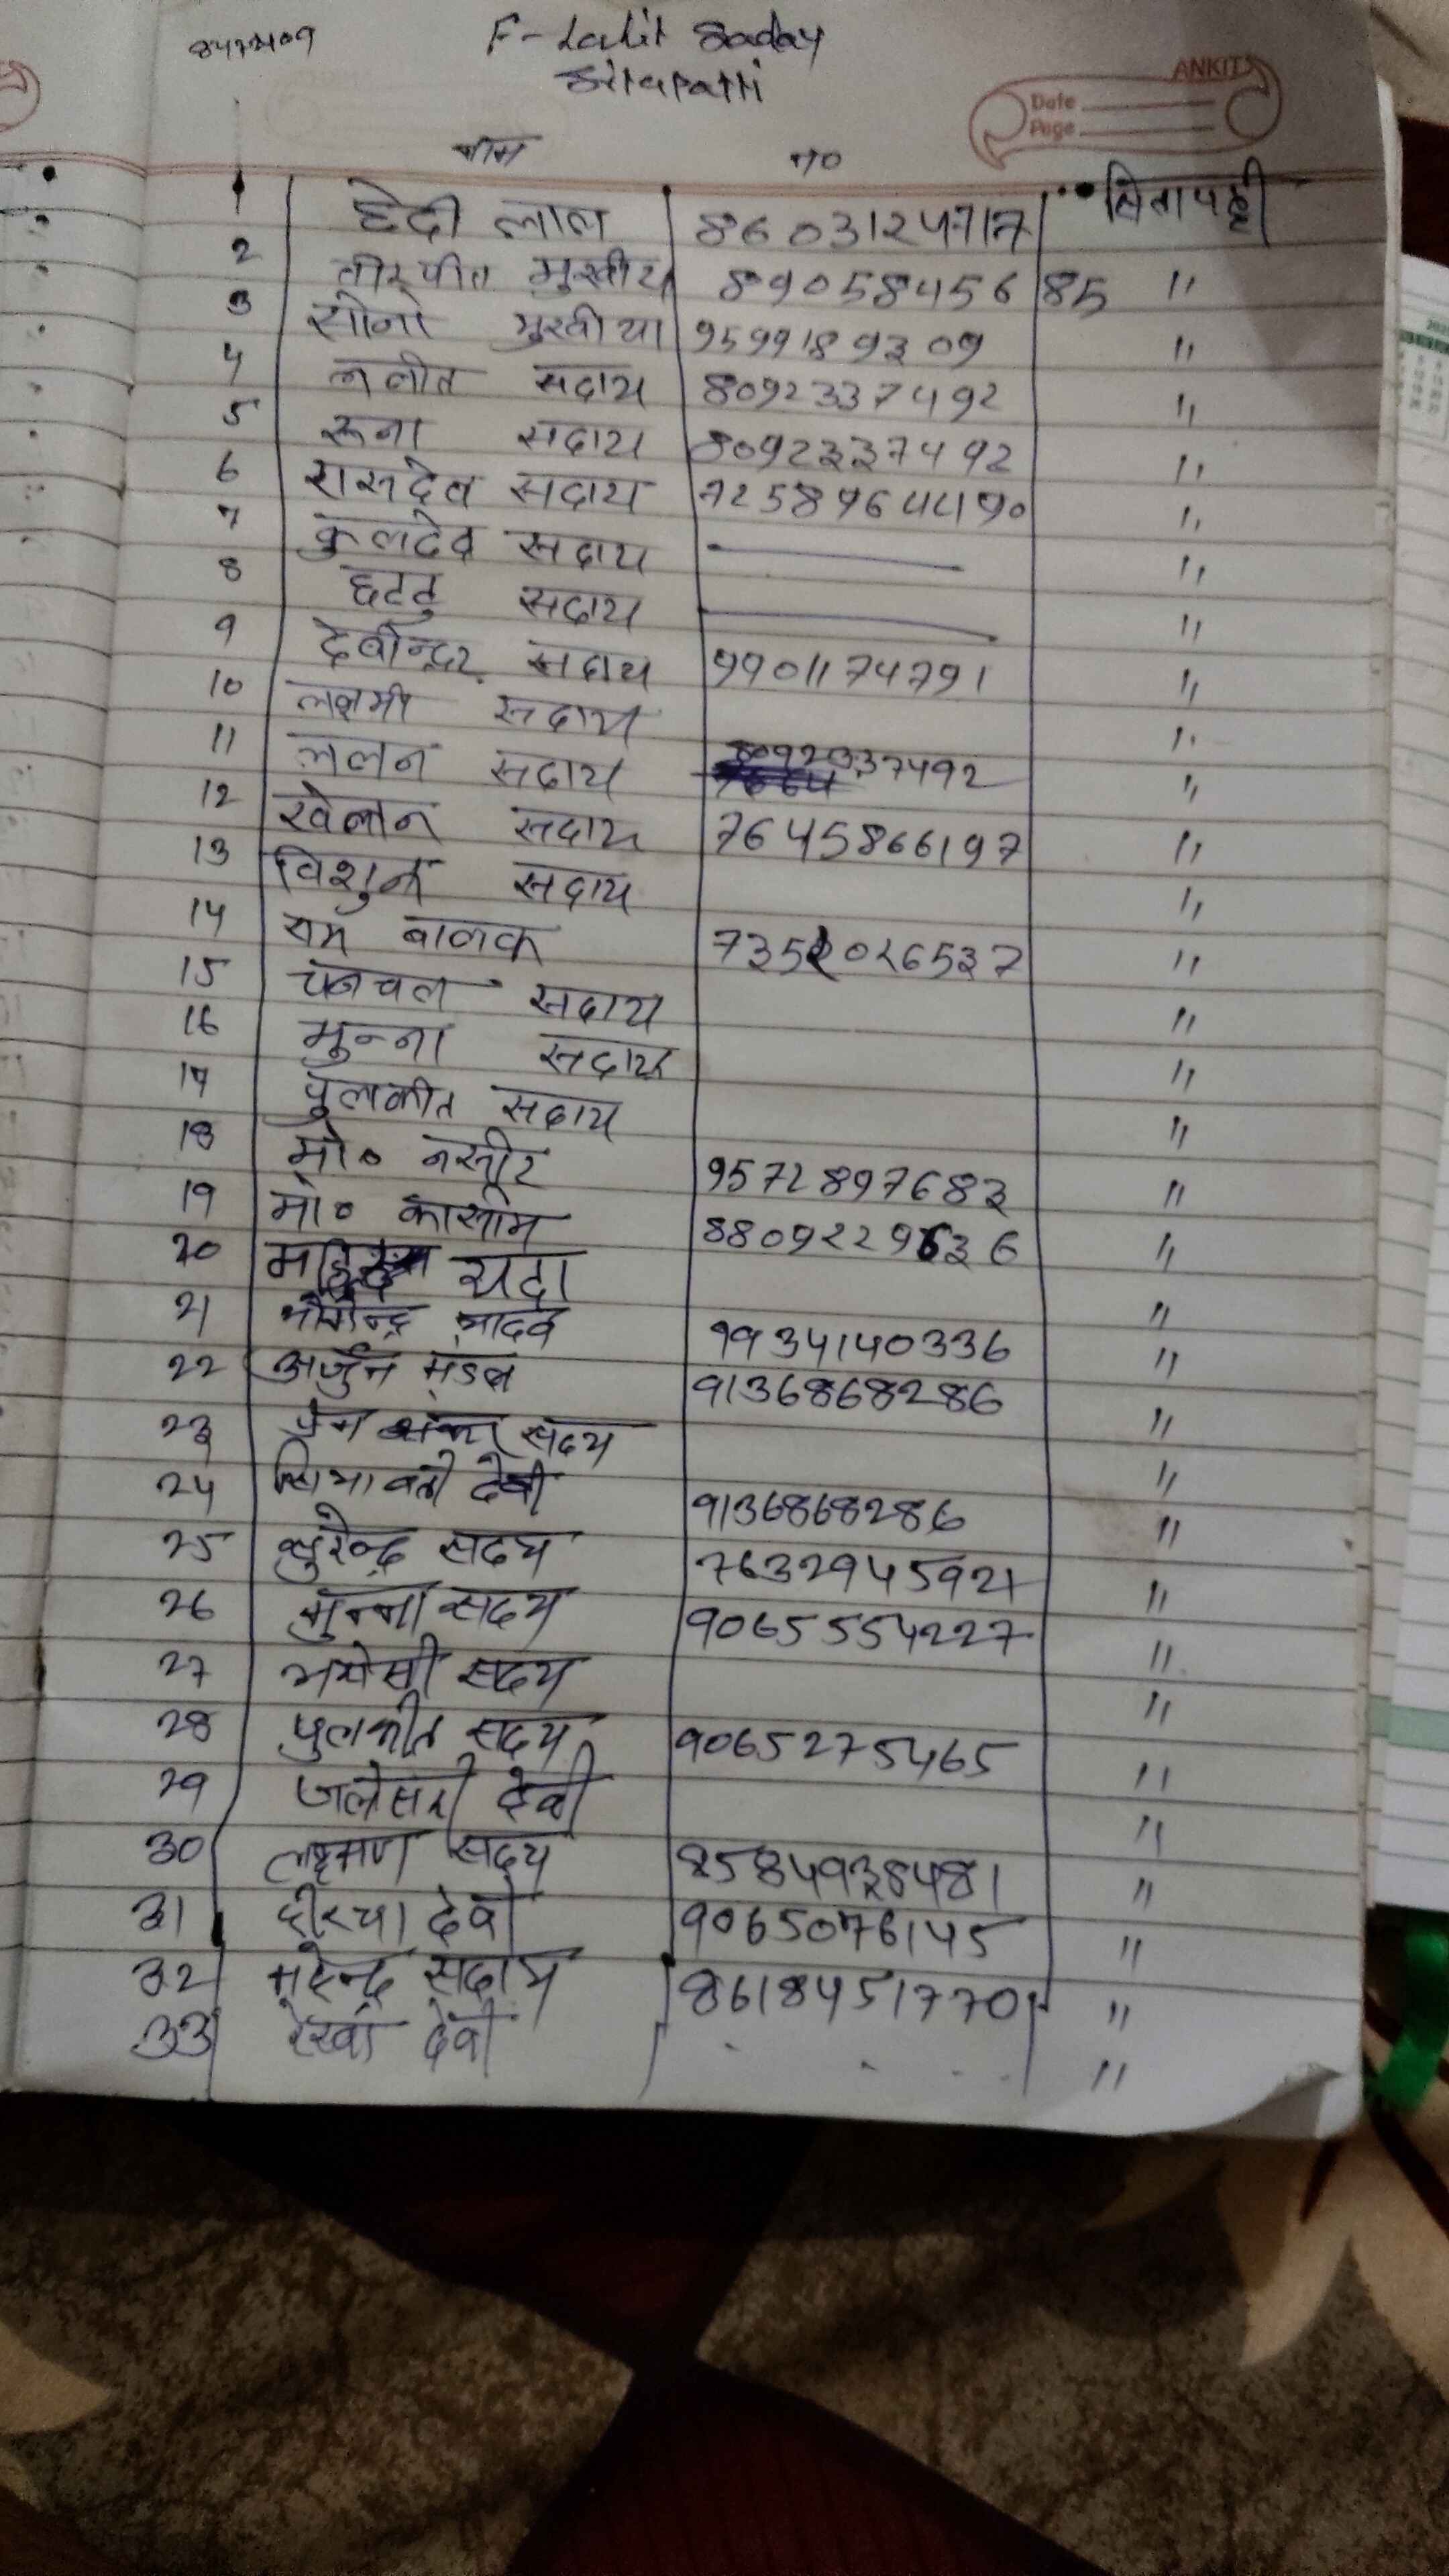 F- Lalit Saday
Sitapatti
ANKIT
Date
Page
नाम no
1 छेदी लाल 8603124717 सितापट्टी
2 मुखीया 8905845685 "
3 सोनो मुखीया 9599189309 "
4 ललीत सदाय 8092337492 "
5 रूना सदाय 8092337492 "
6 रामदेव सदाय "
7 कुलदेव सदाय — "
8 छटटु सदाय — "
9 देवीन्द्रर सदाय 9901174791 "
10 लक्षमी सदाय "
11 ललन सदाय 8092337492 "
12 खेलान सदाय 7645866197 "
13 विशुन सदाय "
14 राम बालक 7352026537 "
15 चनचल सदाय "
16 मुन्ना सदाय "
17 पुलकीत सदाय "
18 मो० नसीर 9572897683 "
19 मो० कासीम 8809229636 "
20 "
21 यादव 9934140336 "
22 अर्जुन मंडल 9136868286 "
23 प्रेम सदय "
24 सियावती देवी 9136868286 "
25 सुरेन्द्र सदय 7632945921 "
26 मुन्ना सदय 9065554227 "
27 सदय "
28 पुलकीत सदय 9065275465 "
29 जलेसरी देवी "
30 लक्ष्मण सदय 8584938481 "
31 देवी 9065076145 "
32 सदाय 8618451770 "
33 रेखा देवी "